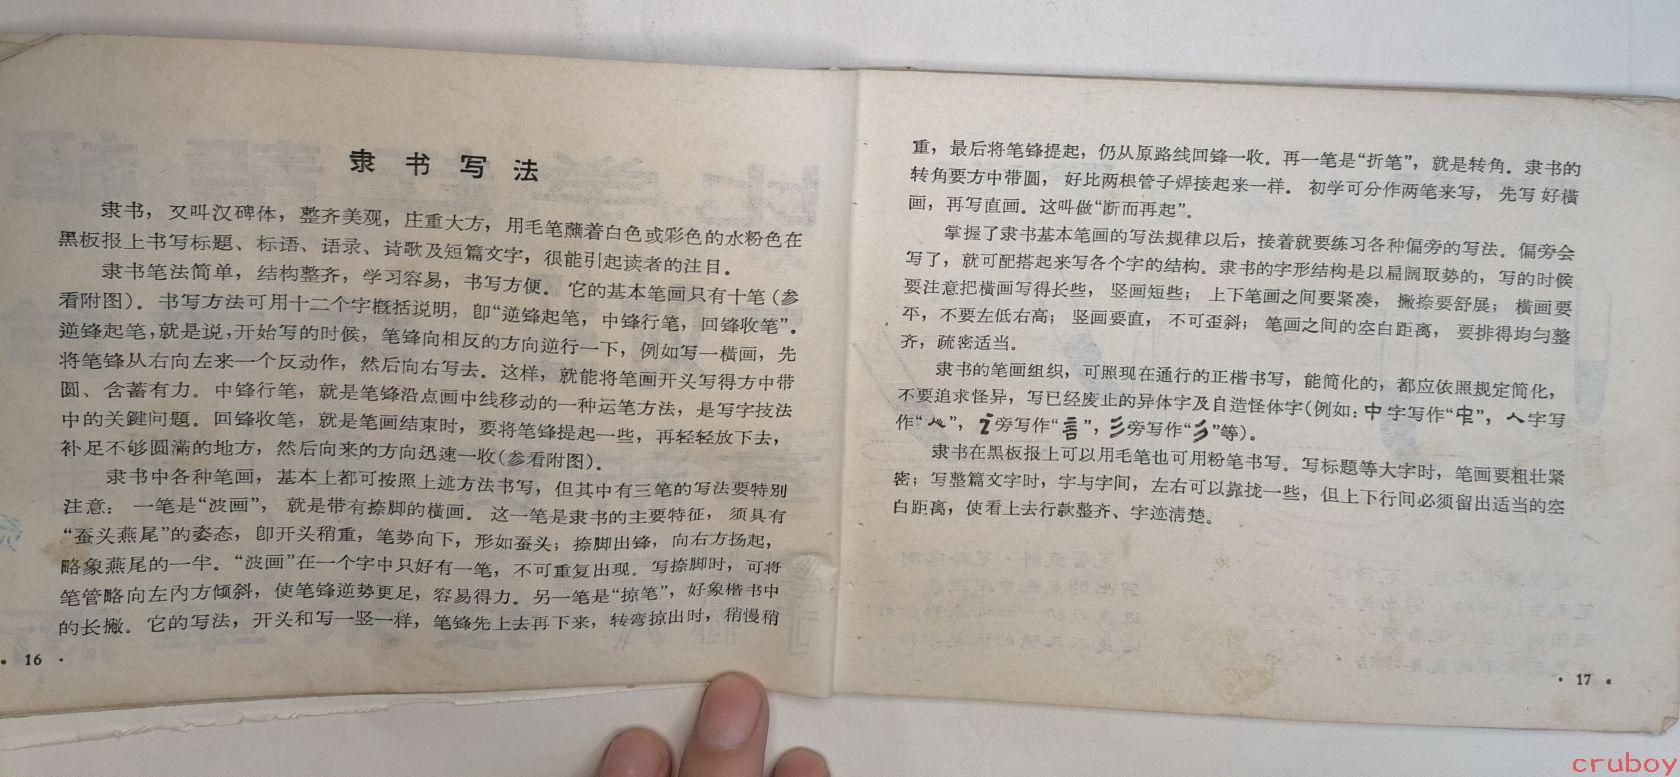 隶书写法
隶书，又叫汉碑体，整齐美观，庄重大方，用毛笔蘸着白色或彩色的水粉色在
黑板报上书写标题、标语、语录、诗歌及短篇文字，很能引起读者的注目。
隶书笔法简单，结构整齐，学习容易，书写方便。它的基本笔画只有十笔（参
看附图）。书写方法可用十二个字概括说明，即“逆锋起笔，中锋行笔，回锋收笔”。
逆锋起笔，就是说，开始写的时候，笔锋向相反的方向逆行一下，例如写一横画，先
将笔锋从右向左来一个反动作，然后向右写去。这样，就能将笔画开头写得方中带
圆、含蓄有力。中锋行笔，就是笔锋沿点画中线移动的一种运笔方法，是写字技法
中的关键问题。回锋收笔，就是笔画结束时，要将笔锋提起一些，再轻轻放下去，
补足不够圆满的地方，然后向来的方向迅速一收（参看附图）。
隶书中各种笔画，基本上都可按照上述方法书写，但其中有三笔的写法要特别
注意：一笔是“波画”，就是带有捺脚的横画。这一笔是隶书的主要特征，须具有
“蚕头燕尾”的姿态，即开头稍重，笔势向下，形如蚕头；捺脚出锋，向右方扬起，
略象燕尾的一半。“波画”在一个字中只好有一笔，不可重复出现。写捺脚时，可将
笔管略向左内方倾斜，使笔锋逆势更足，容易得力。另一笔是“掠笔”，好象楷书中
的长撇。它的写法，开头和写一竖一样，笔锋先上去再下来，转弯掠出时，稍慢稍
· 16 ·
重，最后将笔锋提起，仍从原路线回锋一收。再一笔是“折笔”，就是转角。隶书的
转角要方中带圆，好比两根管子焊接起来一样。初学可分作两笔来写，先写好横
画，再写直画。这叫做“断而再起”。
掌握了隶书基本笔画的写法规律以后，接着就要练习各种偏旁的写法。偏旁会
写了，就可配搭起来写各个字的结构。隶书的字形结构是以扁阔取势的，写的时候
要注意把横画写得长些，竖画短些；上下笔画之间要紧凑，撇捺要舒展；横画要
平，不要左低右高；竖画要直，不可歪斜；笔画之间的空白距离，要排得均匀整
齐，疏密适当。
隶书的笔画组织，可照现在通行的正楷书写，能简化的，都应依照规定简化，
不要追求怪异，写已经废止的异体字及自造怪体字（例如：中字写作“”，人字写
作“”，讠旁写作“言”，彡旁写作“”等）。
隶书在黑板报上可以用毛笔也可用粉笔书写。写标题等大字时，笔画要粗壮紧
密；写整篇文字时，字与字间，左右可以靠拢一些，但上下行间必须留出适当的空
白距离，使看上去行款整齐、字迹清楚。
· 17 ·
cruboy